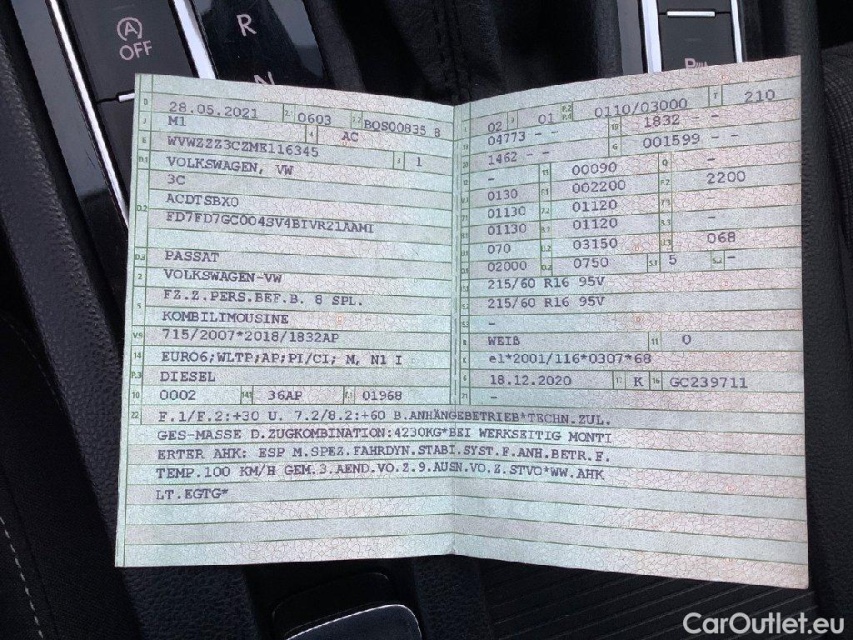 OFF
R
N
28.05.2021 0603 BQS00835 8
M1 AC
WVWZZZ3CZME116345 1
VOLKSWAGEN, VW
3C
ACDTSBX0
FD7FD7GC004SV4BIVR21AAMI
PASSAT
VOLKSWAGEN-VW
FZ.Z.PERS.BEF.B. 8 SPL.
KOMBILIMOUSINE
715/2007*2018/1832AP
EURO6;WLTP;AP;PI/CI; M, N1 I
DIESEL
0002 36AP 01968
02 01 0110/03000 210
04773 - - 1832 - -
1462 - - 001599 - -
- 00090 -
0130 002200 2200
01130 01120
01130 01120 -
070 03150 068
02000 0750 5 -
215/60 R16 95V
215/60 R16 95V
-
WEIß 0
e1*2001/116*0307*68
18.12.2020 K GC239711
-
F.1/F.2:+30 U. 7.2/8.2:+60 B.ANHÄNGEBETRIEB*TECHN.ZUL.
GES-MASSE D.ZUGKOMBINATION:4230KG*BEI WERKSEITIG MONTI
ERTER AHK: ESP M.SPEZ.FAHRDYN.STABI.SYST.F.ANH.BETR.F.
TEMP.100 KM/H GEM.3.AEND.VO.Z.9.AUSN.VO.Z.STVO*WW.AHK
LT.EGTG*
CarOutlet.eu